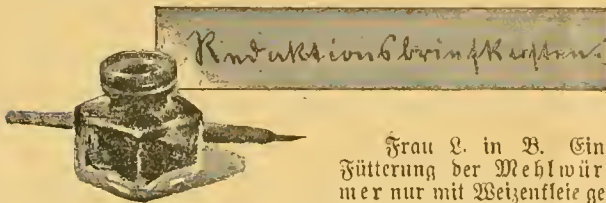 Redaktionsbriefkasten.
Frau L. in B. Ein
Fütterung der Mehlwür
mer nur mit Weizenkleie ge